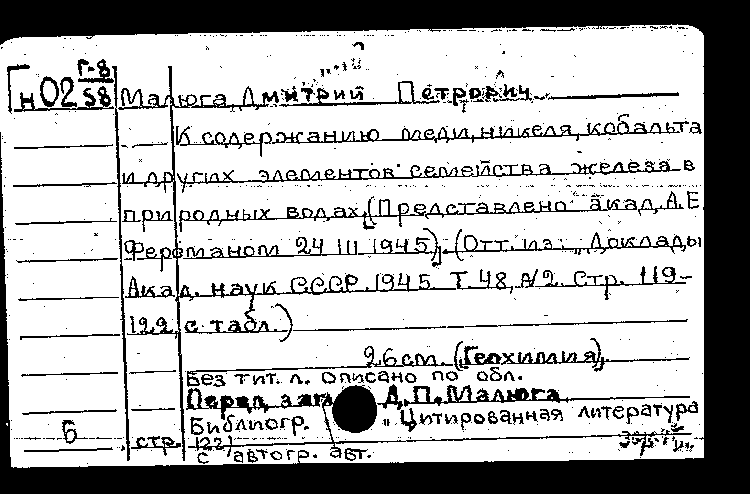 Г-8
н02 58
Малюга, Дмитрий Петрович
К содержанию меди, никеля, кобальта
и других элементов семейства железа в
природных водах. (Представлено акад. А.Е.
Ферсманом 24 III 1945). (Отт. из: "Доклады
Акад. наук СССР. 1945. Т. 48, №2. Стр. 119-
122, с табл.)
26 см. (Геохимия).
Без тит. л. Описано по обл.
Перед загл. Д. П. Малюга
Библиогр. "Цитированная литература
Б стр. 122)
с автогр. авт.